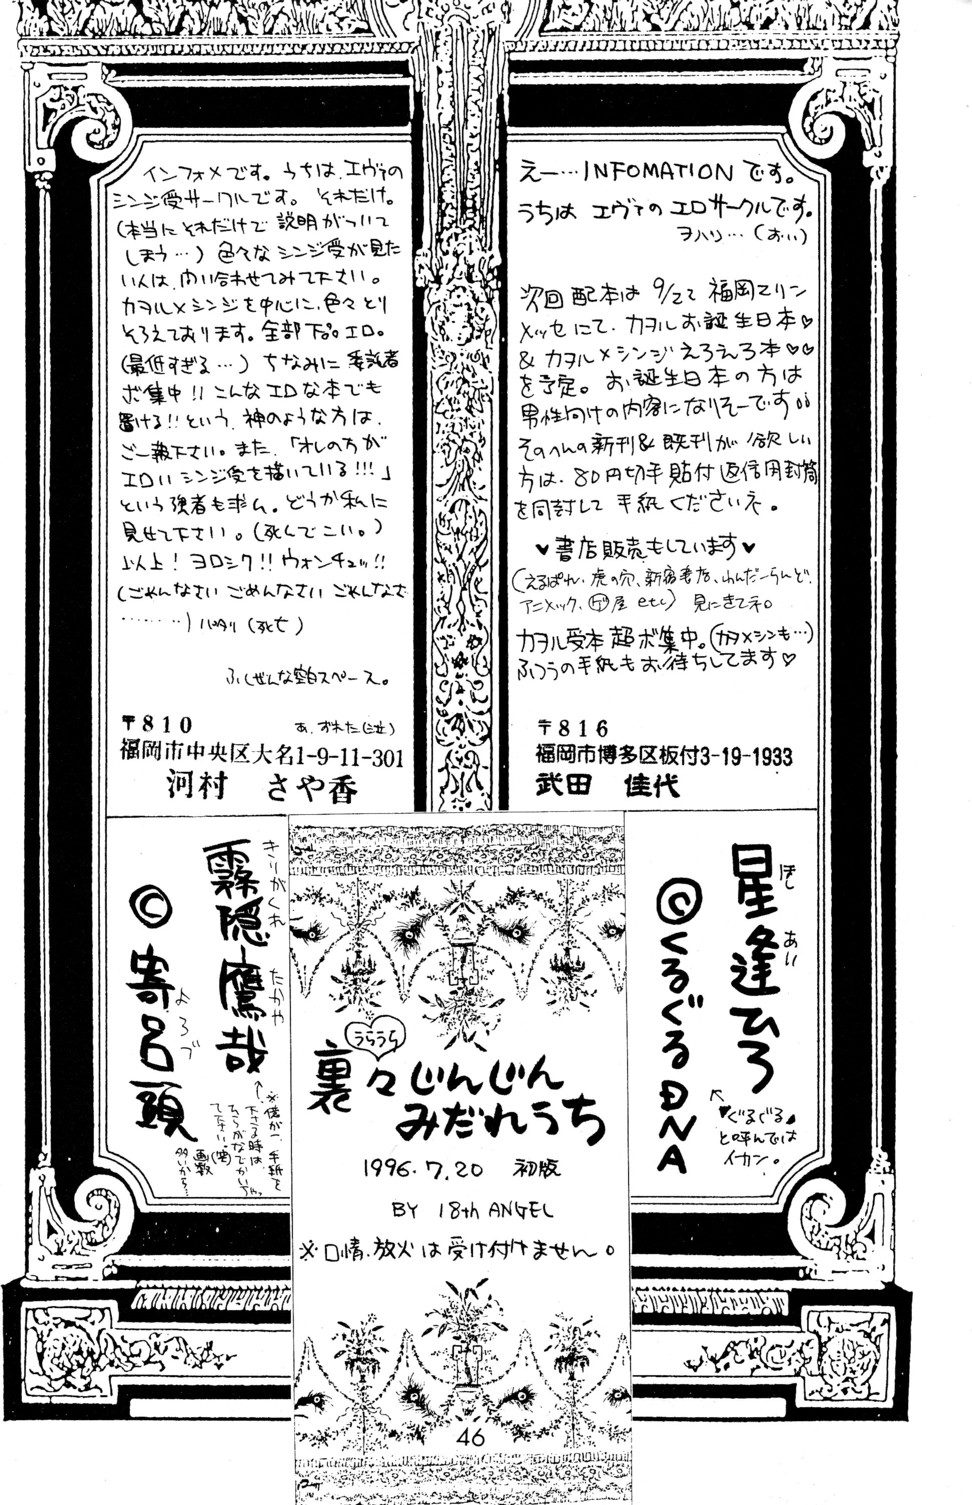 インフォメです。うちは、エヴァの
シンジ受サークルです。それだけ。
(本当にそれだけで説明がついて
しまう…) 色々なシンジ受が見た
い人は、問い合わせてみて下さい。
カヲル×シンジを中心に、色々とり
そろえております。全部 エロ。
(最低すぎる…) ちなみに委託者
ボ集中!! こんなエロな本でも
置ける!! という、神のような方は、
ご一報下さい。また、「オレの方が
エロいシンジ受を描いている!!!」
という強者も求ム。どうか私に
見せて下さい。(死んでこい。)
以上! ヨロシク!! ウォンチュッ!!
(ごめんなさい ごめんなさい ごめんなさ
………) バタリ (死亡)
ふしぜんな空白スペース。
あ、ずれた
〒810
福岡市中央区大名1-9-11-301
河村 さや香
えー…INFOMATIONです。
うちは エヴァの エロサークルです。
ヲハリ…(おい)
次回配本は 9/22 福岡マリン
メッセにて、カヲルお誕生日本♡
& カヲル×シンジえろえろ本♡♡
を予定。お誕生日本の方は
男性向けの内容になりそーです
そのへんの新刊&既刊が欲しい
方は、80円切手貼付返信用封筒
を同封して手紙くださいネ。
♥書店販売もしています♥
(えるぱれ、虎の穴、新宿書店、わんだーらんど、
アニメック、㋘屋 etc) 見にきてネ。
カヲル受本 超ボ集中。(カヲ×シンも…)
ふつうの手紙もお待ちしてます♡
〒816
福岡市博多区板付3-19-1933
武田 佳代
星逢ひろ
ほし あい
©くるぐるDNA
♥ぐるぐる♥
と呼んでは
イカン。
霧隠鷹哉
きりがくれ たかや
©寄呂頭
よろず
※僕が一、手紙を
下さる時は、
ひらがなでかいちゃっ
て下さい。(笑)
画数
多いから…
うらうら
裏々じんじん
みだれうち
1996.7.20 初版
BY 18th ANGEL
※口情、放火は受け付けません。
46